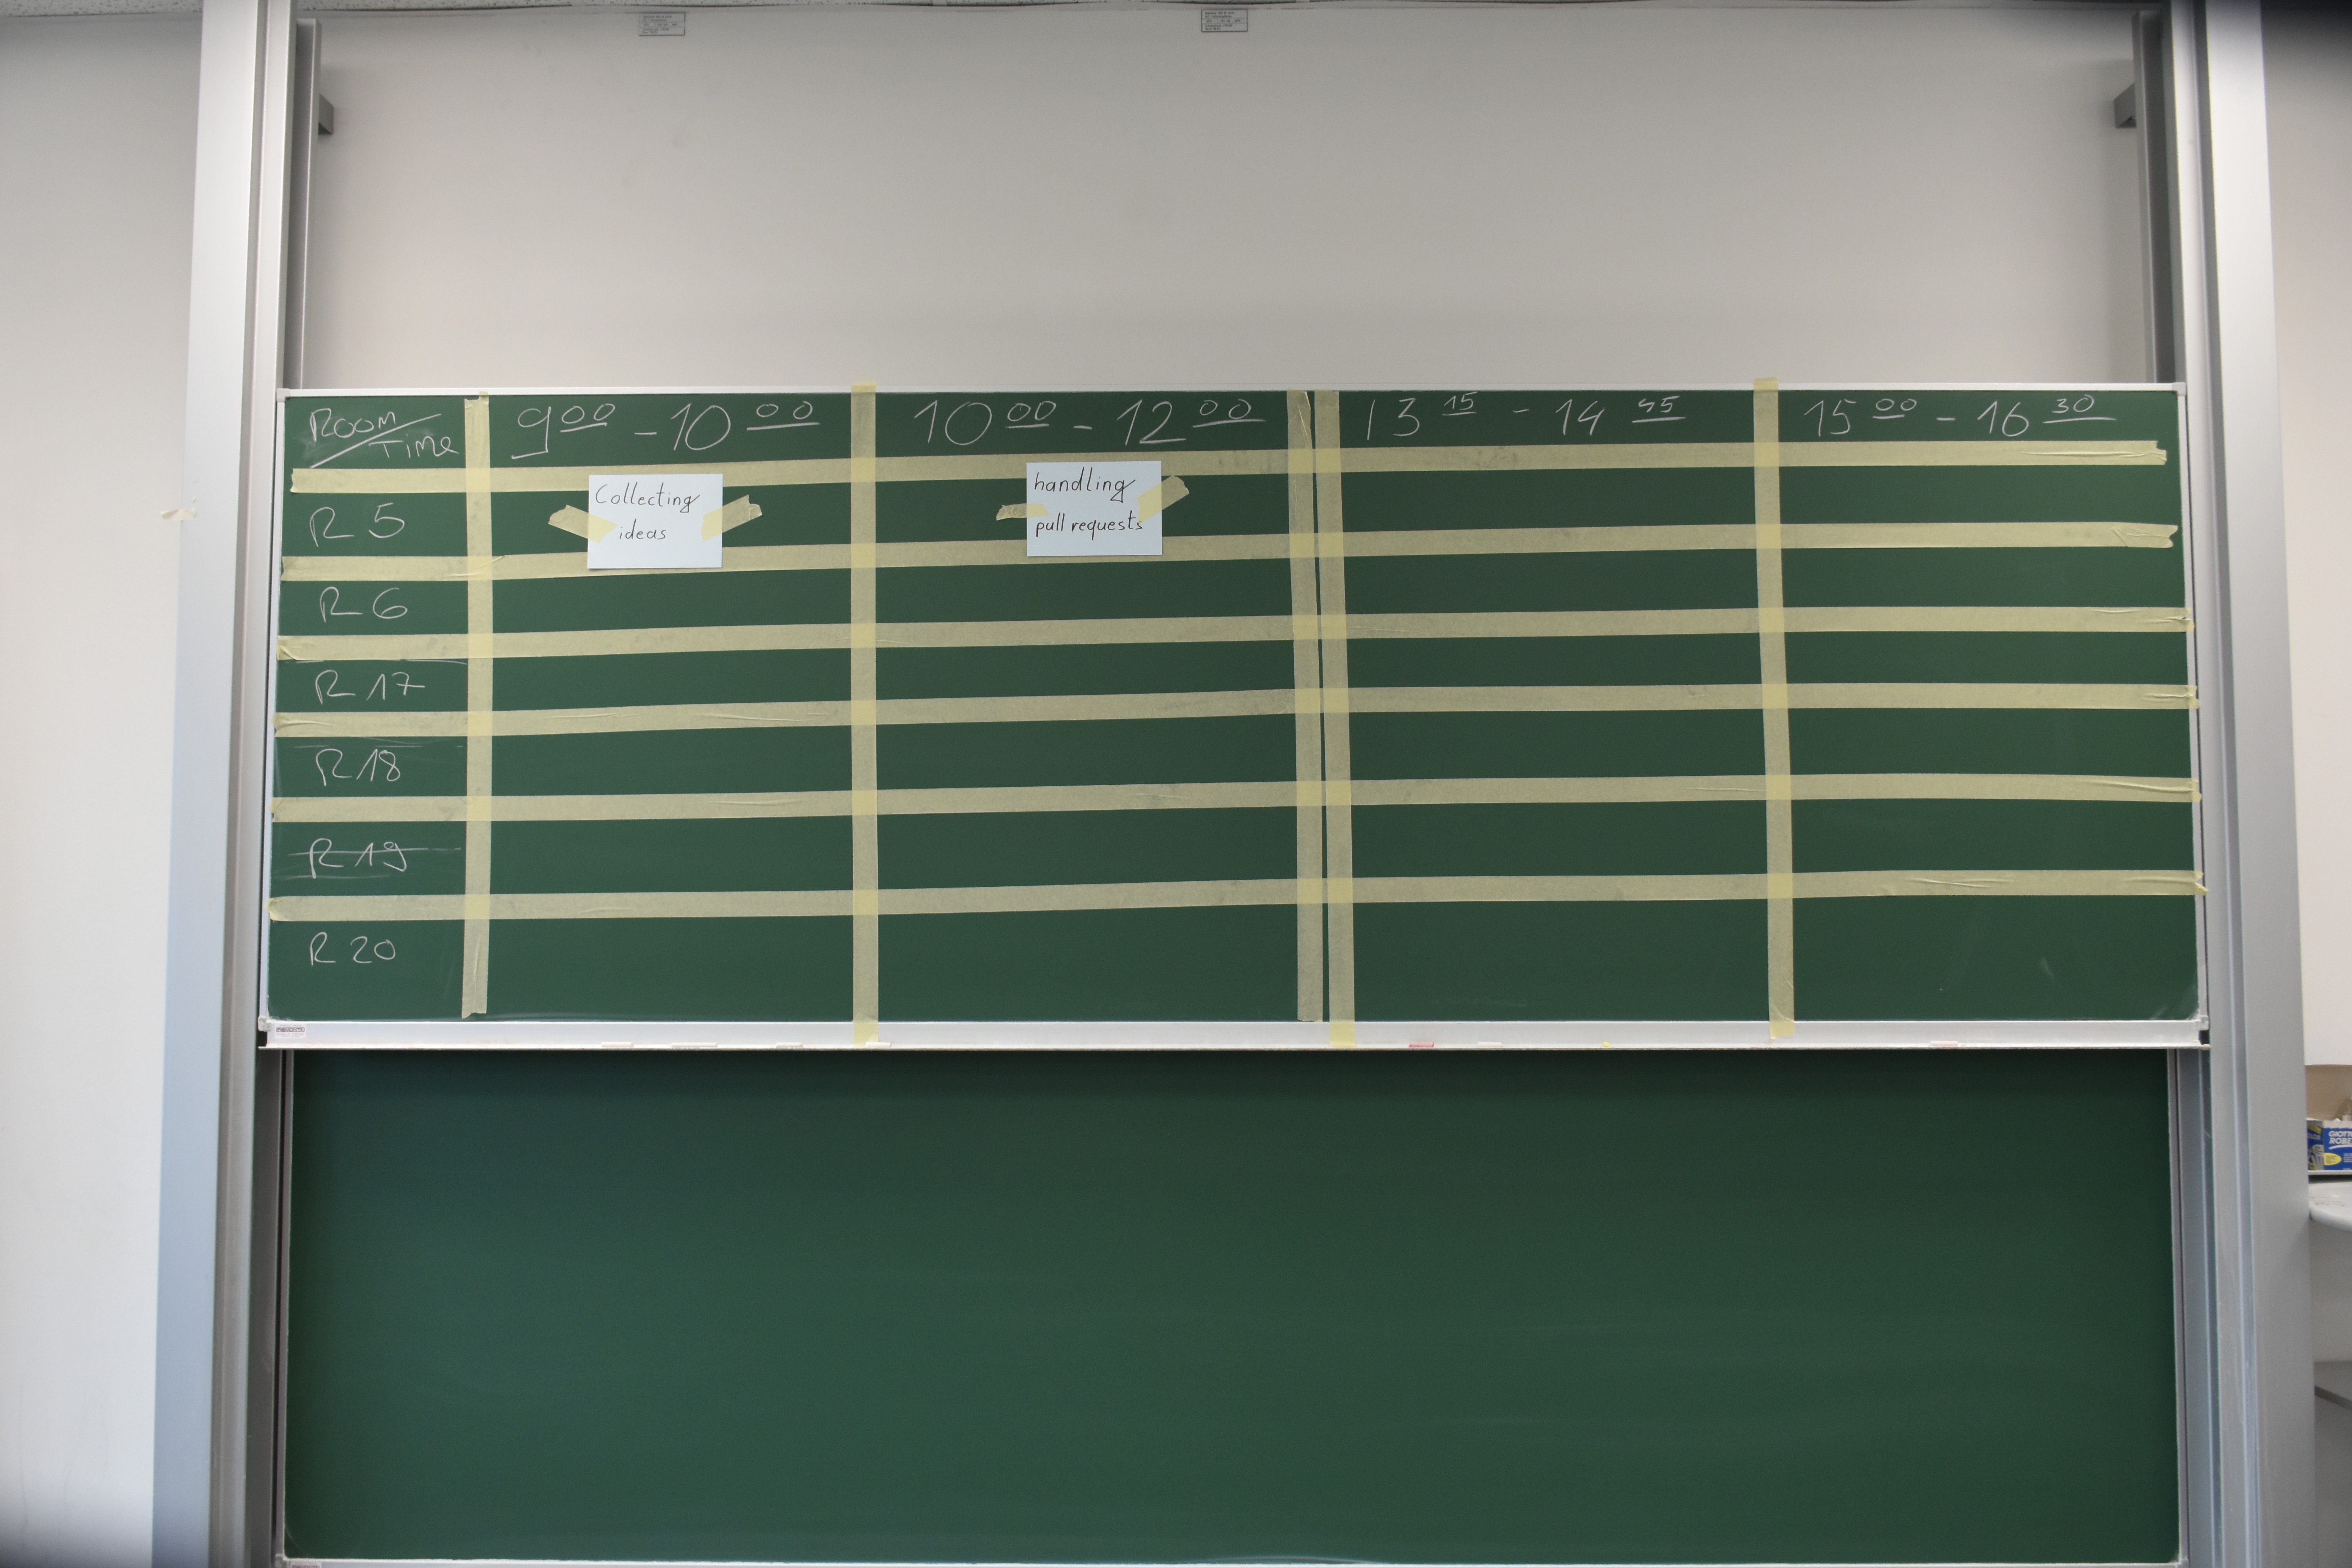 Room / Time
9 00 - 10 00
10 00 - 12 00
13 15 - 14 45
15 00 - 16 30
R 5
Collecting
ideas
handling
pull requests
R 6
R 17
R 18
R 19
R 20